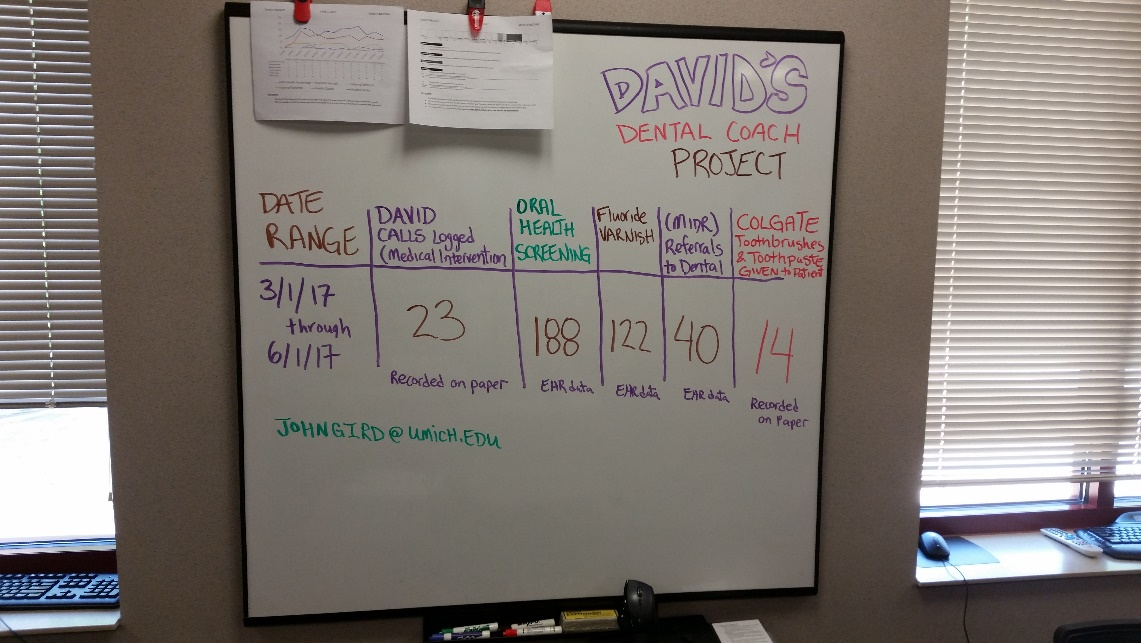 DAVID'S
DENTAL COACH
PROJECT
DATE
RANGE
DAVID
CALLS Logged
(Medical Intervention
ORAL
HEALTH
SCREENING
Fluoride
VARNISH
(MIDR)
Referrals
to Dental
COLGATE
Toothbrushes
& Toothpaste
GIVEN to Patient
3/1/17
through
6/1/17
23
188
122
40
14
Recorded on paper
EHR data
EHR data
EHR data
Recorded
on Paper
JOHNGIRD@UMICH.EDU